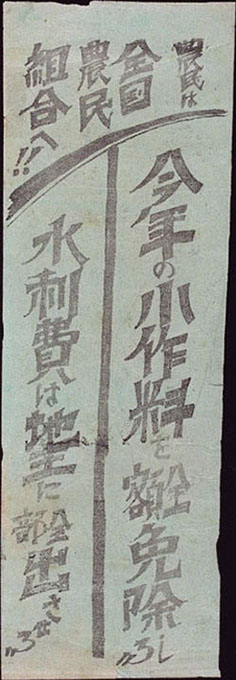 農民は
全国
農民
組合へ!!
今年の小作料を全額免除しろ!!
水利費は地主に全部出させろ!!